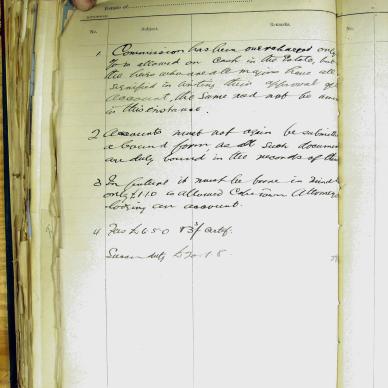 No.
Subject.
Remarks.
1. Commission has been overcharged only
allowed on cash in the Estate, but
the heirs who are all majors have all
signified in writing their approval of
account, the same need not be
in this instance.
2 Accounts must not again be
a bound form, as all such
are duly bound in the records of
3 In future it must be borne in mind
only £1.10 is allowed Cape Town
lodging an account.
4 Fees £6.5.0